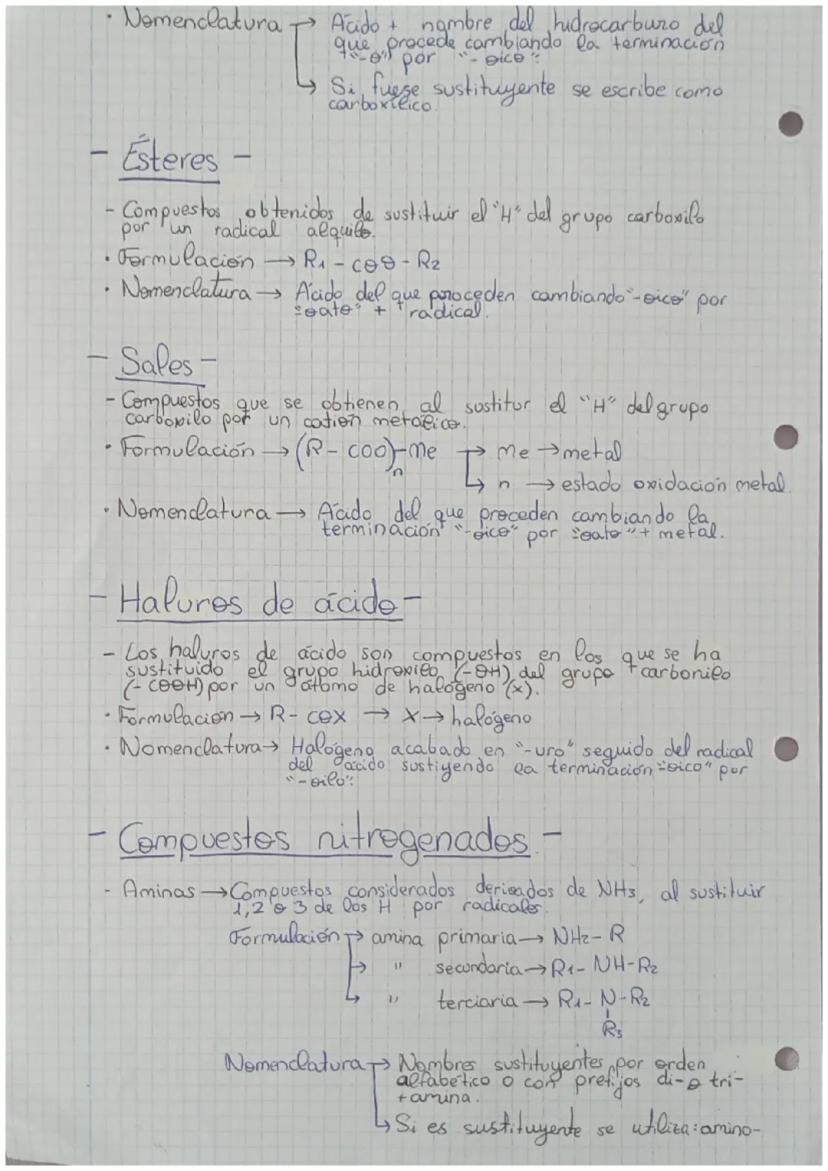 · Nomenclatura → Ácido + nombre del hidrocarburo del
que procede cambiando la terminación
"-o" por "-oico".
↳ Si fuese sustituyente se escribe como
carboxílico.
- Ésteres -
- Compuestos obtenidos de sustituir el "H" del grupo carboxilo
por un radical alquilo.
· Formulación → R1 - COO - R2
· Nomenclatura → Ácido del que proceden cambiando "-oico" por
"oato" + radical.
- Sales -
- Compuestos que se obtienen al sustitur el "H" del grupo
carboxilo por un catión metálico.
· Formulación → (R - COO)n-Me → Me → metal
↳ n → estado oxidación metal.
· Nomenclatura → Ácido del que proceden cambiando la
terminación "-oico" por "oato" + metal.
- Haluros de ácido -
- Los haluros de ácido son compuestos en los que se ha
sustituido el grupo hidroxilo (-OH) del grupo carbonilo
(-COOH) por un átomo de halógeno (x).
· Formulación → R - COX → X → halógeno
· Nomenclatura → Halógeno acabado en "-uro" seguido del radical
del ácido sustiyendo la terminación "oico" por
"-oilo".
- Compuestos nitrogenados. -
- Aminas → Compuestos considerados derivados de NH3, al sustituir
1, 2 o 3 de los H por radicales.
Formulación → amina primaria → NH2 - R
→ " secundaria → R1 - NH - R2
↳ " terciaria → R1 - N - R2
R3
Nomenclatura → Nombres sustituyentes por orden
alfabético o con prefijos di- o tri-
+ amina.
↳ Si es sustituyente se utiliza: amino-